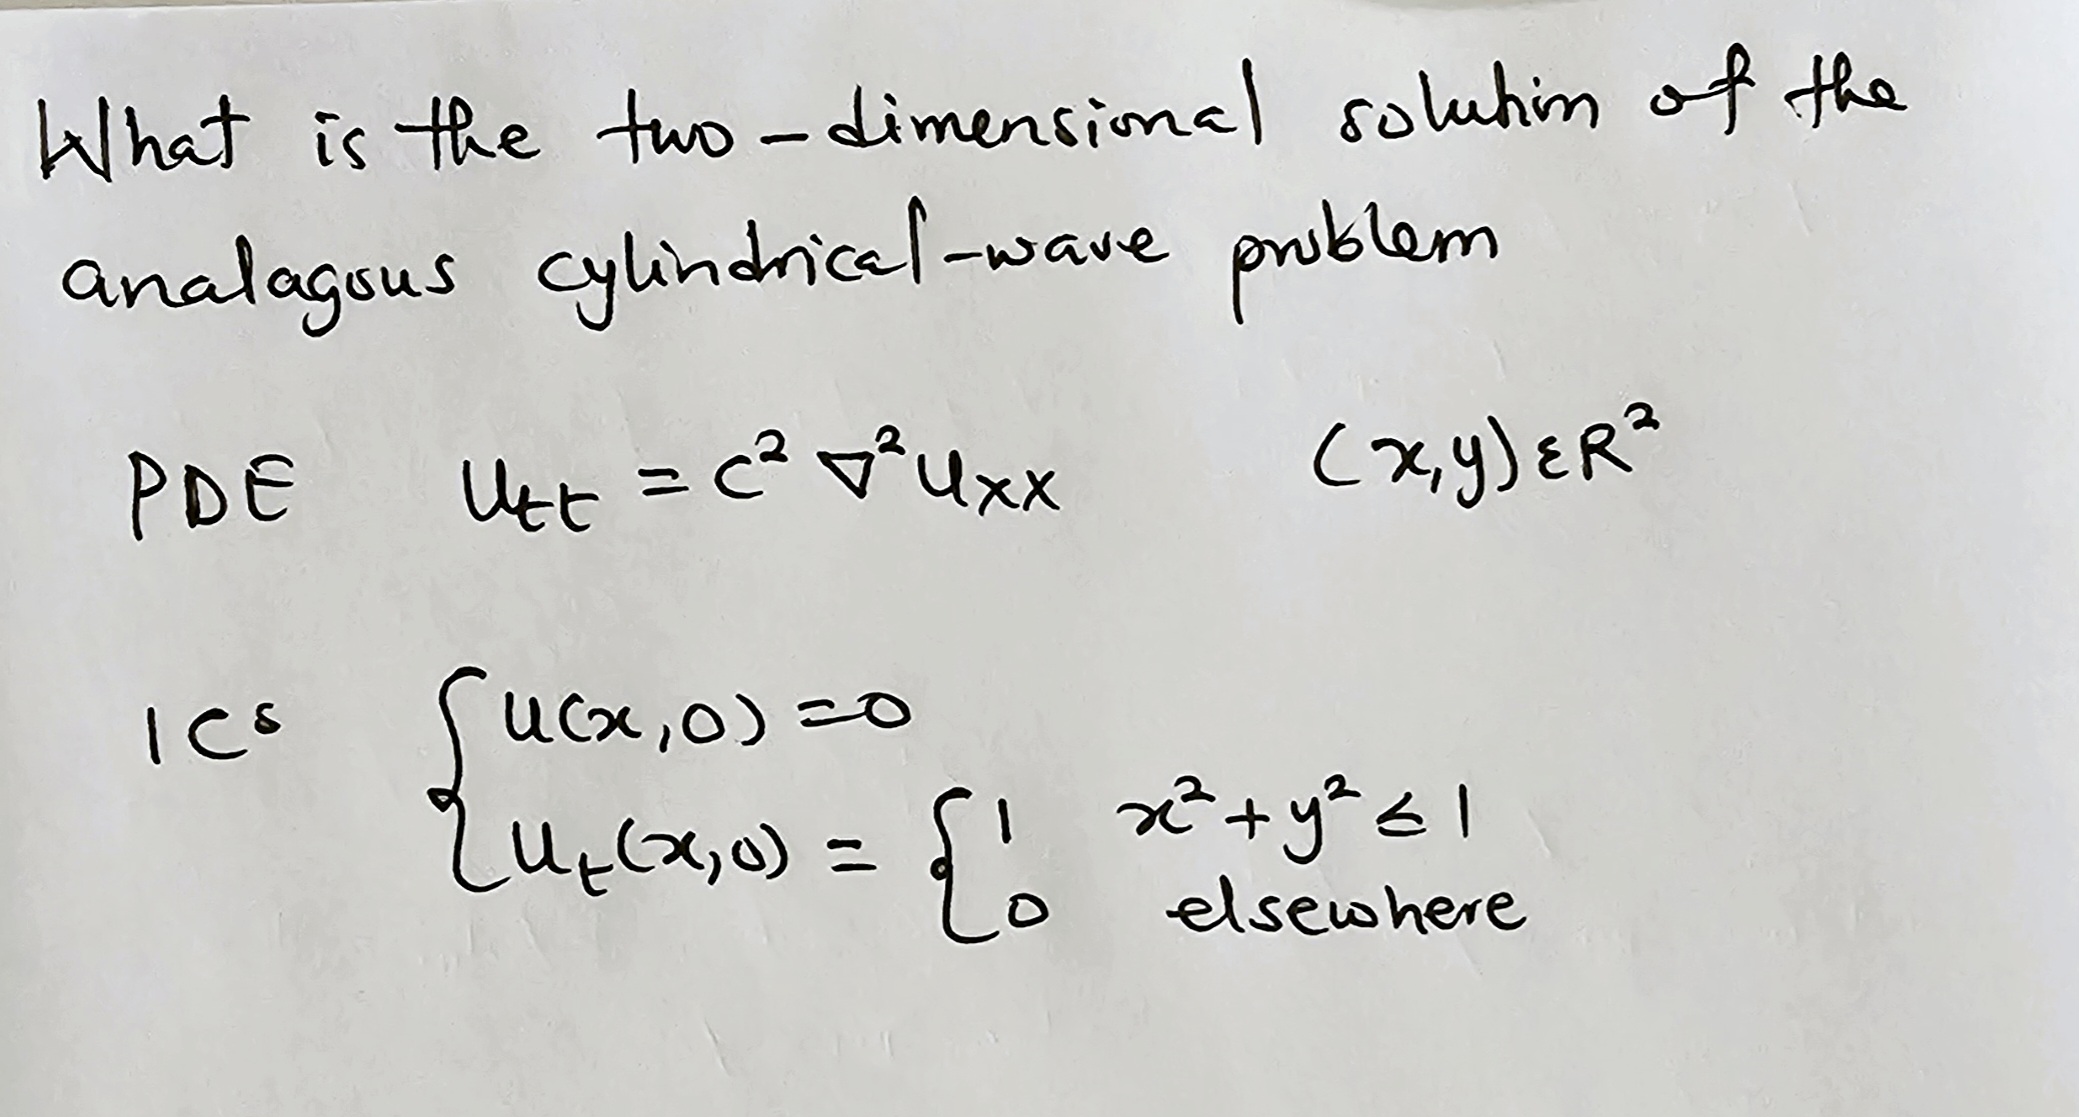 What is the two-dimensional solution of the
analagous cylindrical-wave problem
PDE  u_tt = c² ∇² u_xx  (x,y) ε R²
ICs { u(x,0) = 0
u_t(x,0) = { 1  x² + y² ≤ 1
0  elsewhere